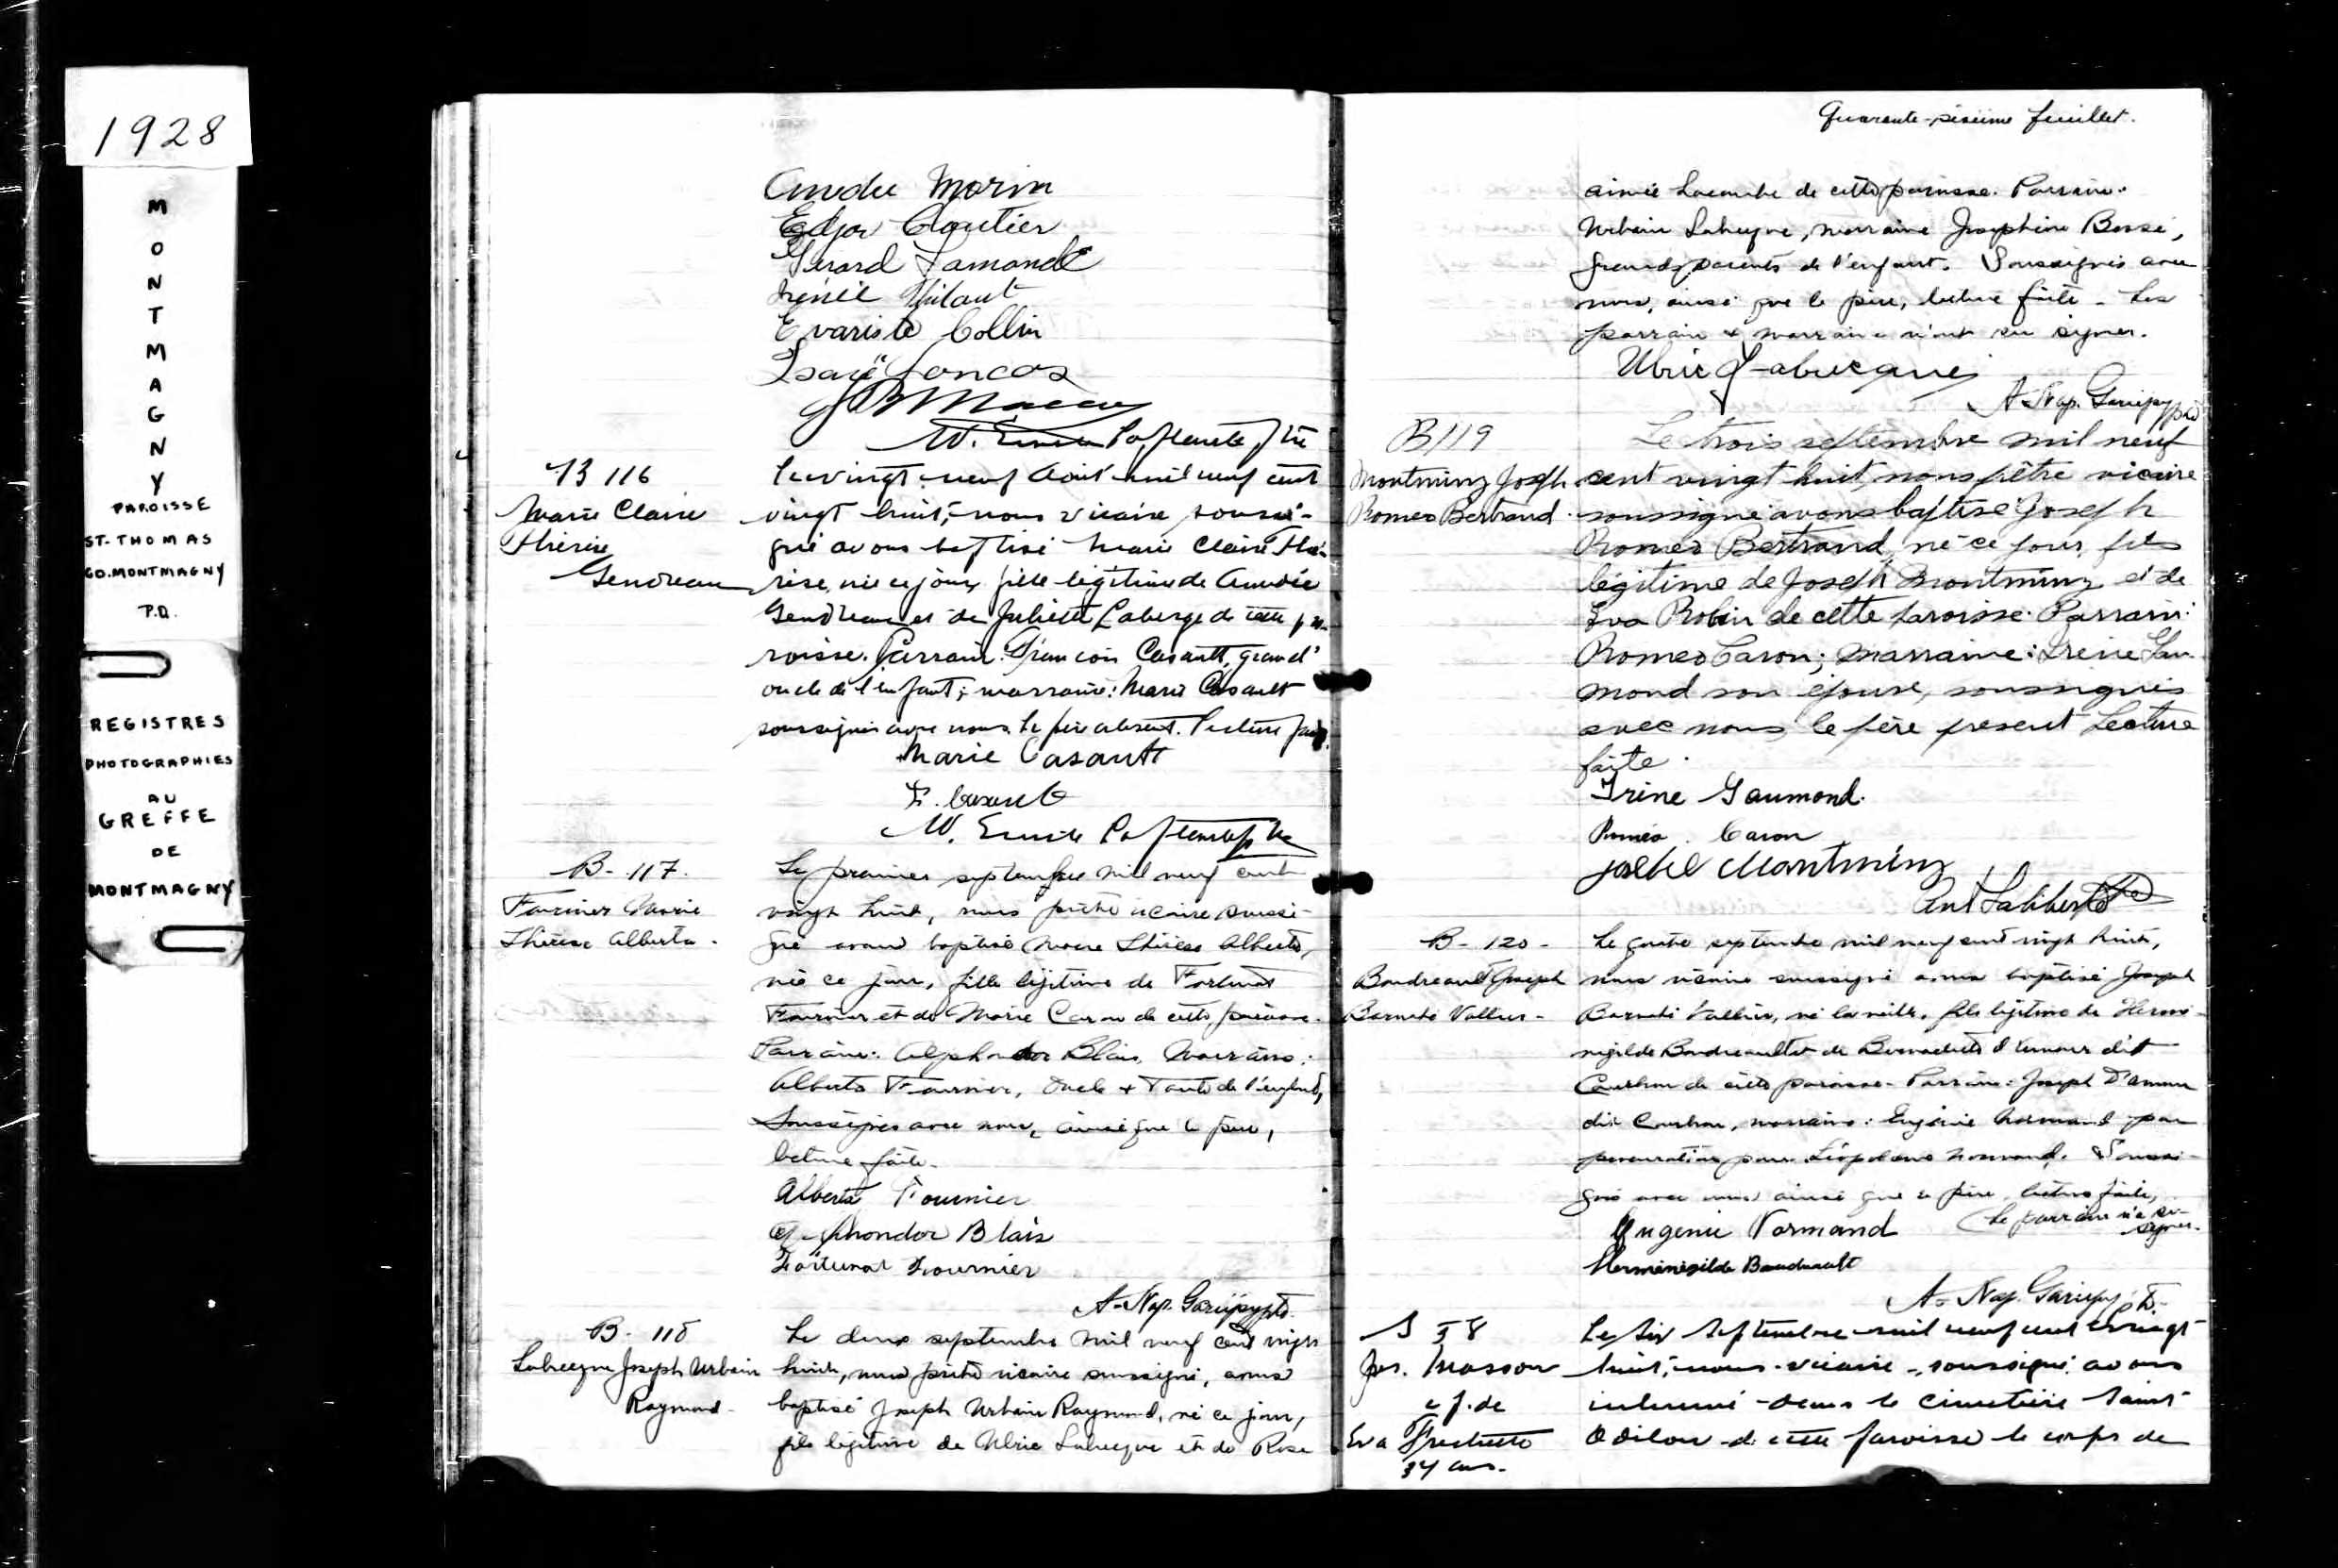 1928
MONTMAGNY
PAROISSE
ST. THOMAS
CO. MONTMAGNY
P.Q.
REGISTRES
PHOTOGRAPHIES
AU
GREFFE
DE
MONTMAGNY
Morin
Cloutier
Gerard Lamonde
Evariste Collin
B 116
Marie Claire
Thérèse
Gendreau
le vingt-neuf Août mil neuf cent
vingt huit, nous vicaire soussi-
gné avons baptisé Marie Claire Thé-
rèse, née ce jour, fille légitime de Amedée
Gendreau et de Juliette Laberge de cette pa-
roisse. Parrain: François Casault, grand'
oncle de l'enfant; marraine: Marie Casault
soussignés avec nous, le père absent. Lecture faite.
Marie Casault
F. Casault
B-117.
Fournier Marie
Thérèse Alberta.
Le premier septembre mil neuf cent
vingt huit, nous prêtre vicaire soussi-
gné avons baptisé Marie Thérèse Alberta,
née ce jour, fille légitime de Fortunat
Fournier et de Marie Caron de cette paroisse.
Parrain: Alphondor Blais, Marraine:
Alberta Fournier, Oncle & Tante de l'enfant,
Soussignés avec nous, ainsi que le père,
lecture faite.
Alberta Fournier
Alphondor Blais
Fortunat Fournier
A-Nap. Gariépy ptre.
B-118
Labrecque Joseph Urbain
Raymond-
Le deux septembre mil neuf cent vingt
huit, nous prêtre vicaire soussigné, avons
baptisé Joseph Urbain Raymond, né ce jour,
fils légitime de Ulric Labrecque et de Rose
Quarante-sixième feuillet.
aimée Lacombe de cette paroisse. Parrain:
Urbain Labrecque, marraine Joséphine Bossé,
grands parents de l'enfant. Soussignés avec
nous, ainsi que le père, lecture faite - Les
parrain & marraine n'ont su signer.
Ulric Labrecque
A-Nap. Gariépy ptre
B119
Montminy Joseph
Romeo Bertrand.
Le trois septembre mil neuf
cent vingt huit, nous prêtre vicaire
soussigné avons baptisé Joseph
Romeo Bertrand, né ce jour, fils
légitime de Joseph Montminy et de
Eva Robin de cette paroisse. Parrain:
Romeo Caron; Marraine: Irène Gau-
mond son épouse, soussignés
avec nous, le père présent Lecture
faite.
Irène Gaumond.
Roméo Caron
Joseph Montminy
Ant Laliberté Ptre
B-120-
Boudreault Joseph
Le quatre septembre mil neuf cent vingt huit,
nous vicaire soussigné avons baptisé Joseph
né la veille, fils légitime de Hermé-
négilde Boudreault et de Bernadette D'amour dit
Courbon de cette paroisse- Parrain: Joseph D'amour
dit Courbon, marraine: Eugénie Normand par
procuration pour Normand. Soussi-
gnés avec nous ainsi que le père, lecture faite,
(Le parrain n'a su
signer.
Eugénie Normand
Herménégilde Boudreault
A-Nap. Gariépy ptre.
S 58
Jos. Masson
é p. de
Eva Frechette
34 ans.
Le six Septembre mil neuf cent vingt
huit, nous vicaire soussigné avons
inhumé dans le cimetière Saint
Odilon de cette paroisse le corps de